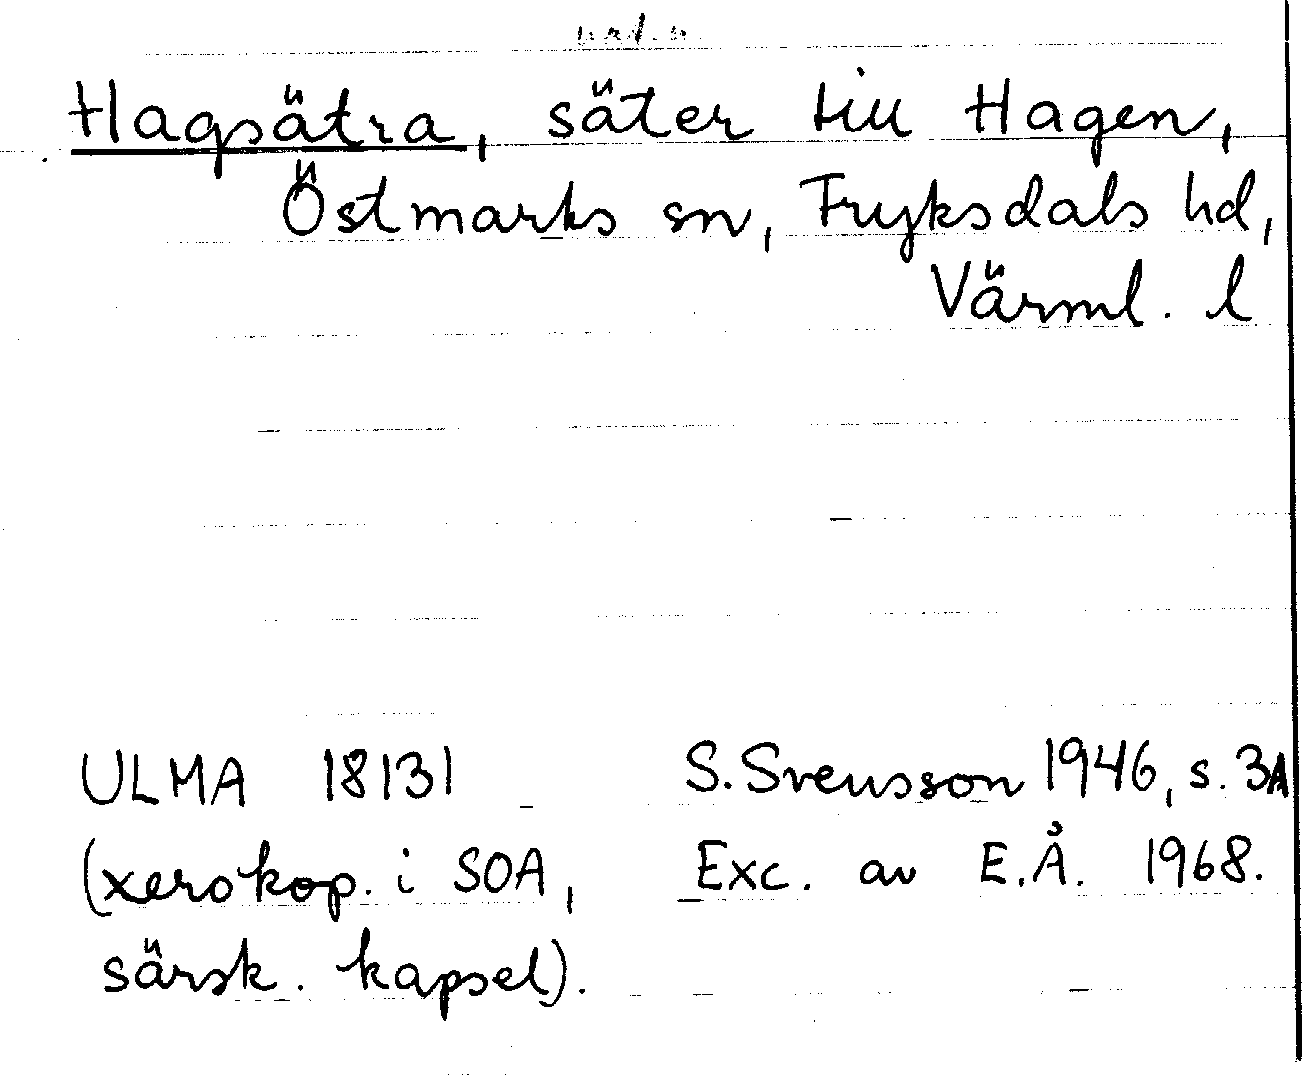 Hagsätra, säter till Hagen,
Östmarks sn, Fryksdals hd,
Värml. l
ULMA 18131 S. Svensson 1946, s. 3A
(xerokop. i SOA, Exc. av E.Å. 1968.
särsk. kapsel).